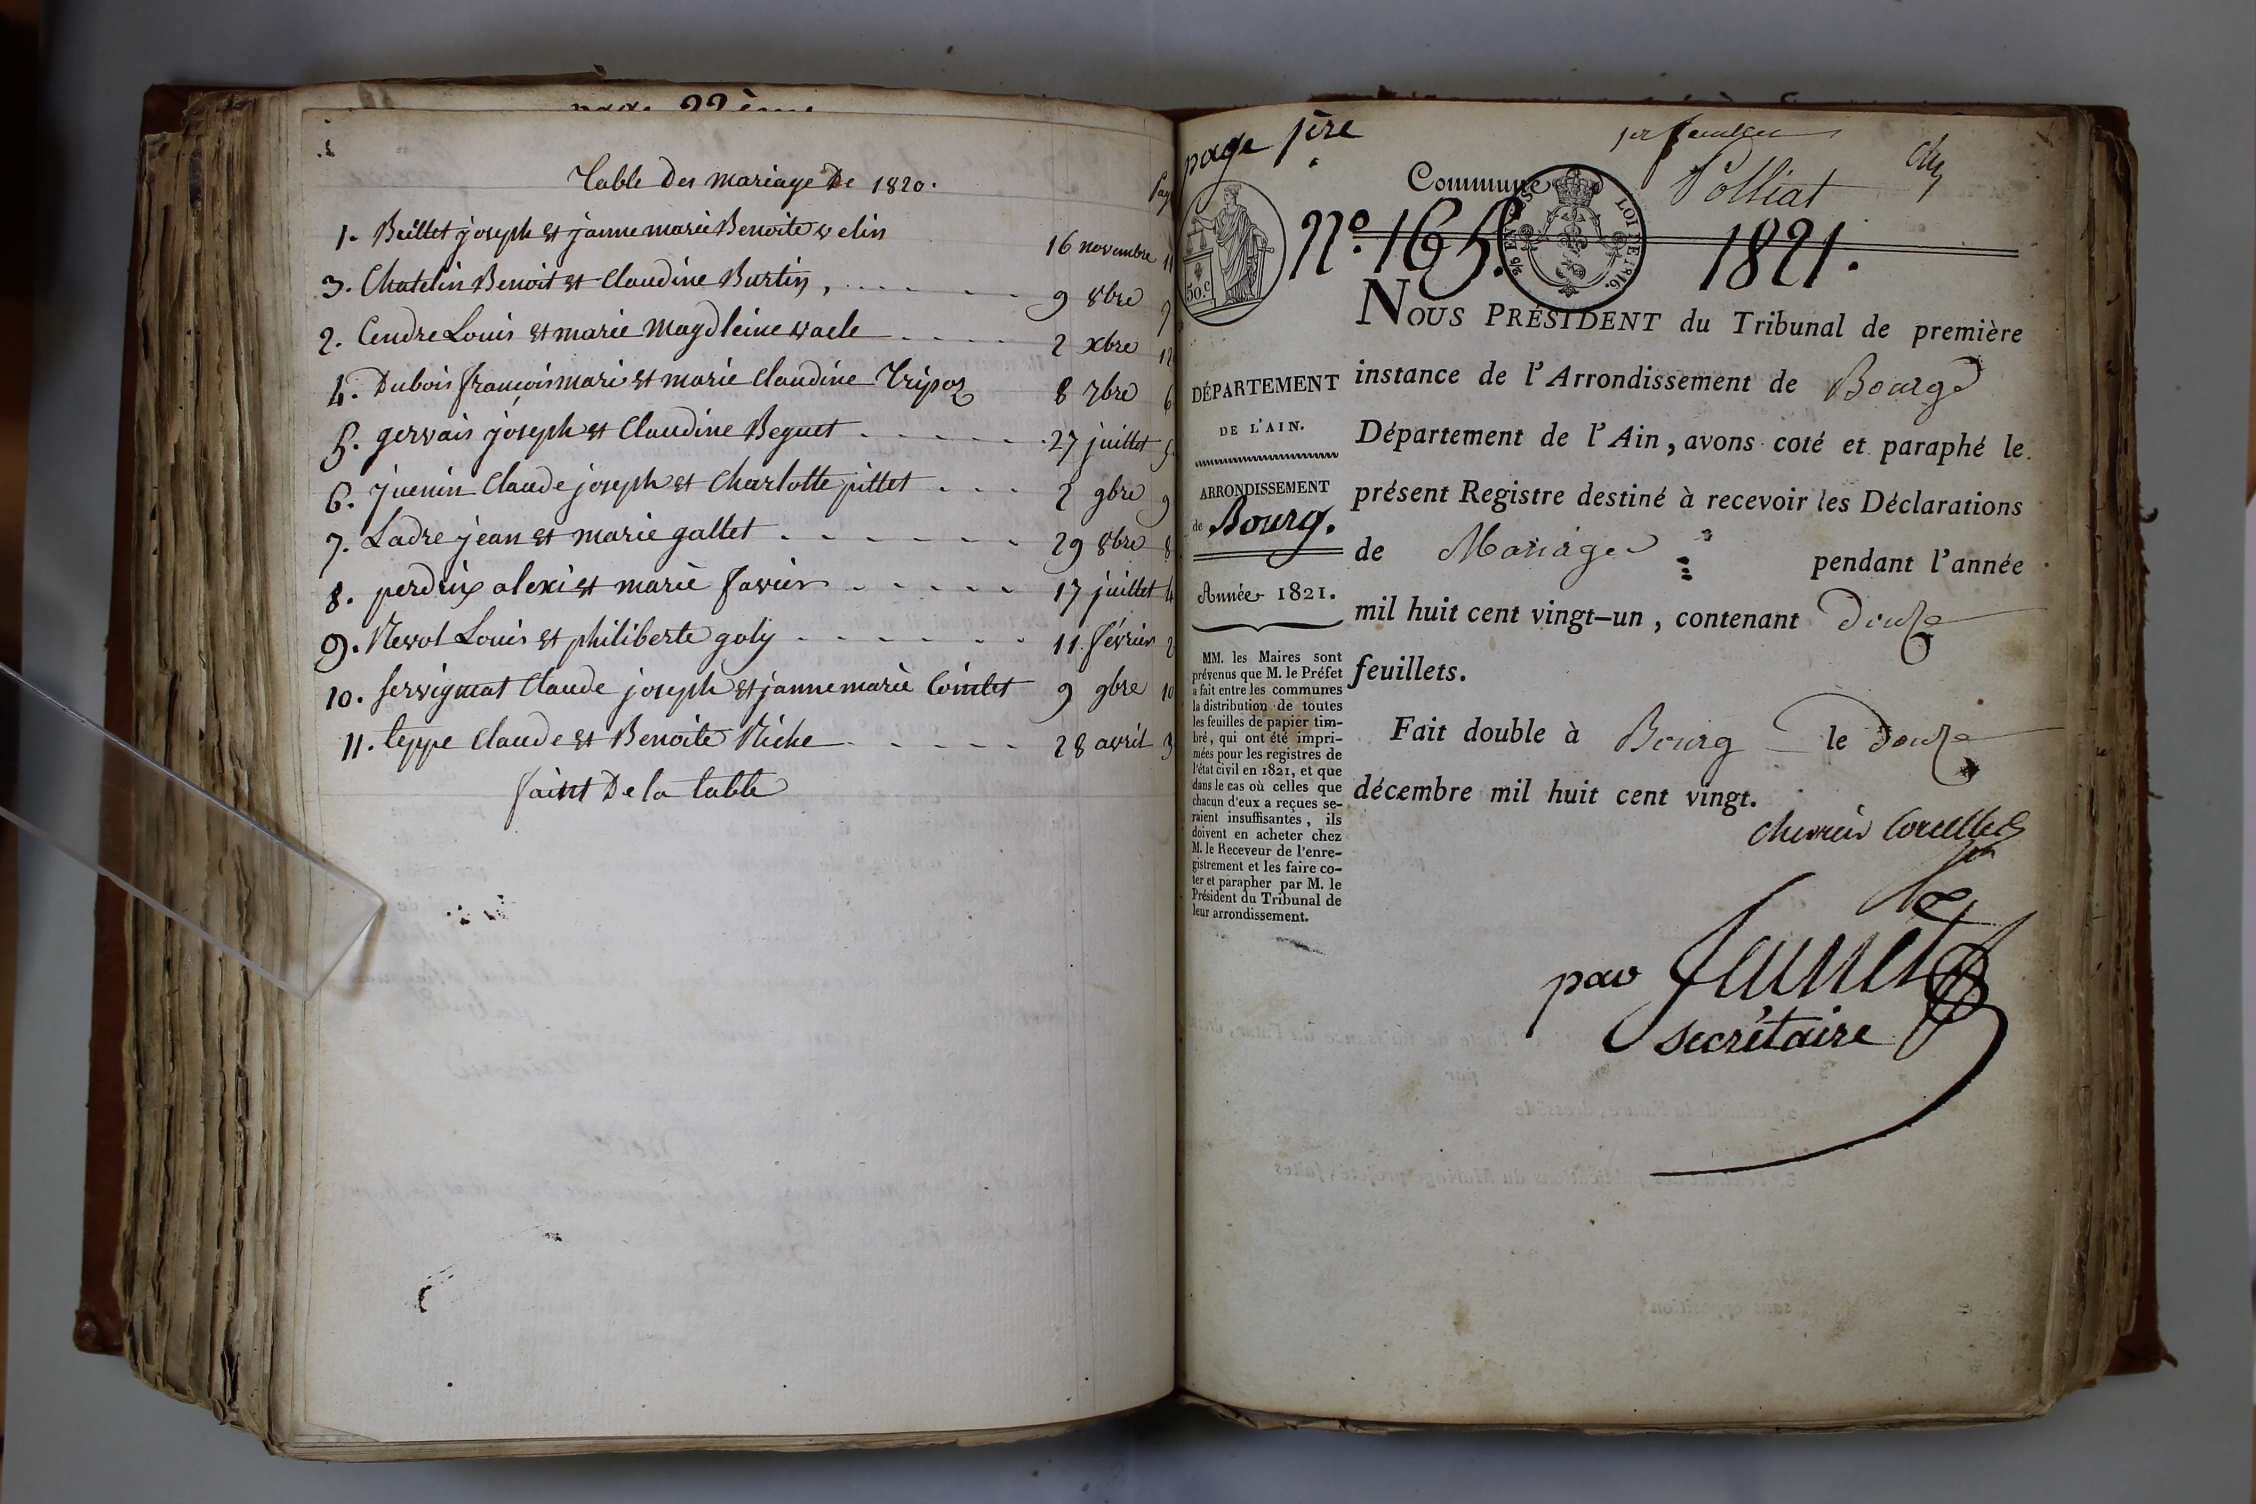 Table Des mariage De 1820.
Pag
1. Beillet joseph et janne marie Benoite velin 16 novembre 11
3. Chatelin Benoit et Claudine Burtin, 9 8bre 9
2. Cendre Louis et marie Magdleine vaele 2 xbre 12
4. Dubois francois mari et marie Claudine Tripoz 8 7bre 6
5. gervais joseph et Claudine Beguet 27 juillet 5
6. juenin Claude joseph et Charlotte pittet 2 9bre 9
7. Ladre jean et marie gallet 29 8bre 8
8. perdrix alexi et marie favier 17 juillet 4
9. Nevot Louis et philiberte goly 11 février 2
10. servignat Claude joseph et janne marie Cointet 9 9bre 10
11. teppe Claude et Benoite Niche 28 avril 3
faint De la table
page 1ère
1er feuillet
Commune Polliat
Nº. 165. 1821.
50.c
LOI DE 1816.
DÉPARTEMENT
DE L'AIN.
ARRONDISSEMENT
de Bourg.
Année 1821.
MM. les Maires sont
prévenus que M. le Préfet
a fait entre les communes
la distribution de toutes
les feuilles de papier tim-
bré, qui ont été impri-
mées pour les registres de
l'état civil en 1821, et que
dans le cas où celles que
chacun d'eux a reçues se-
raient insuffisantes, ils
doivent en acheter chez
M. le Receveur de l'enre-
gistrement et les faire co-
ter et parapher par M. le
Président du Tribunal de
leur arrondissement.
NOUS PRÉSIDENT du Tribunal de première
instance de l'Arrondissement de Bourg
Département de l'Ain, avons coté et paraphé le
présent Registre destiné à recevoir les Déclarations
de Mariages pendant l'année
mil huit cent vingt-un, contenant douze
feuillets.
Fait double à Bourg le douze
décembre mil huit cent vingt.
chevrier Corcelles
par
secrétaire